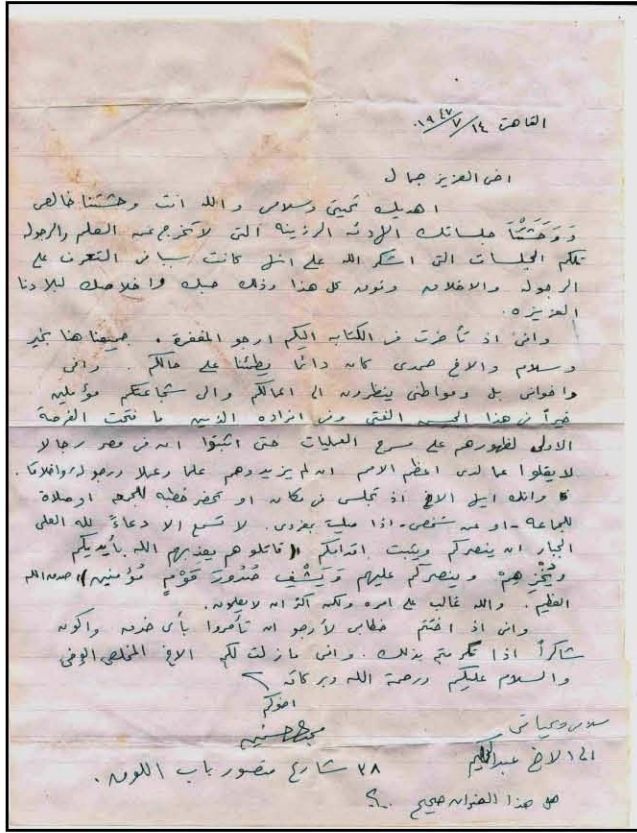 القاهرة ١٤/٧/١٩٤٧
اخى العزيز جمال
اهديك تحيتى وسلامى والله انت وحشتنا خالص
وَوَحَشَتْنَا جلساتك الهادئه الرزينه التى لا تخرج عن العلم والرجوله
تلكم الجلسات التى اشكر الله على انها كانت سببا فى التعرف على
الرجوله والاخلاق وفوق كل هذا وذلك حبك واخلاصك لبلادنا
العزيزه.
وانى اذ تأخرت فى الكتابه اليكم ارجو المغفرة. جميعنا هنا بخير
وسلام والاخ حمدى كان دائما يطمئنا على حالكم. وانى
واخوانى بل ومواطنى ينظرون الى اعمالكم والى شجاعتكم مؤملين
خيراً فى هذا الجيش الفتى وفى افراده الذين ما فتحت الفرصة
الاولى لظهورهم على مسرح العمليات حتى اثبتوا ان فى مصر رجالا
لا يقلوا عما لدى اعظم الامم ان لم يزيدوهم علما وعملا ورجوله واخلاقا.
وانك ايها الاخ اذ تجلس فى مكان او تحضر خطبه للجمعه او صلاة
للجماعه - او من شخص - اذا صليت بمفردى. لا تسمع الا دعاءً لله العلى
الجبار ان ينصركم ويثبت اقدامكم ((قاتلوهم يعذبهم الله بأيديكم
ويُخْزِهِمْ وينصركم عليهم وَيَشْفِ صُدُورَ قَوْمٍ مُؤمنين)) صدق الله
العظيم. والله غالب على امره ولكن اكثر الناس لا يعلمون.
وانى اذ اختتم خطابى لأرجو ان تأمروا بأى خدمه واكون
شاكراً اذا تكرمتم بذلك. وانى ما زلت لكم الاخ المخلص الوفى
والسلام عليكم ورحمة الله وبركاته
اخوكم
سلامى وتحياتى
الى الاخ عبدالحكيم
٣٨ شارع منصور باب اللوق.
هل هذا العنوان صحيح ؟